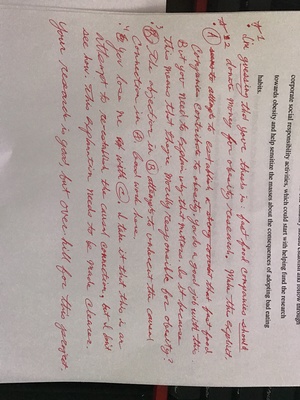 corporate social responsibility activities, which could start with helping fund the research
towards obesity and help sensitize the masses about the consequences of adopting bad eating
habits.
#1
I'm guessing that your thesis is: fast food companies should
donate money for obesity research. Make this explicit.
#2
(A) attempts to establish a strong contention that fast food
Companies contribute to obesity. You do a good job with this.
But you need to explain why that matters. Is it because
this means that they're morally responsible for obesity?
(B) The objection in B attempts to undermine the causal
Connection in A. Good work here.
You lose me with (C). I take it that this is an
Attempt to reestablish the causal connection, but I don't
see how. This explanation needs to be made clearer.
Your research is good, but over-kill for this project.